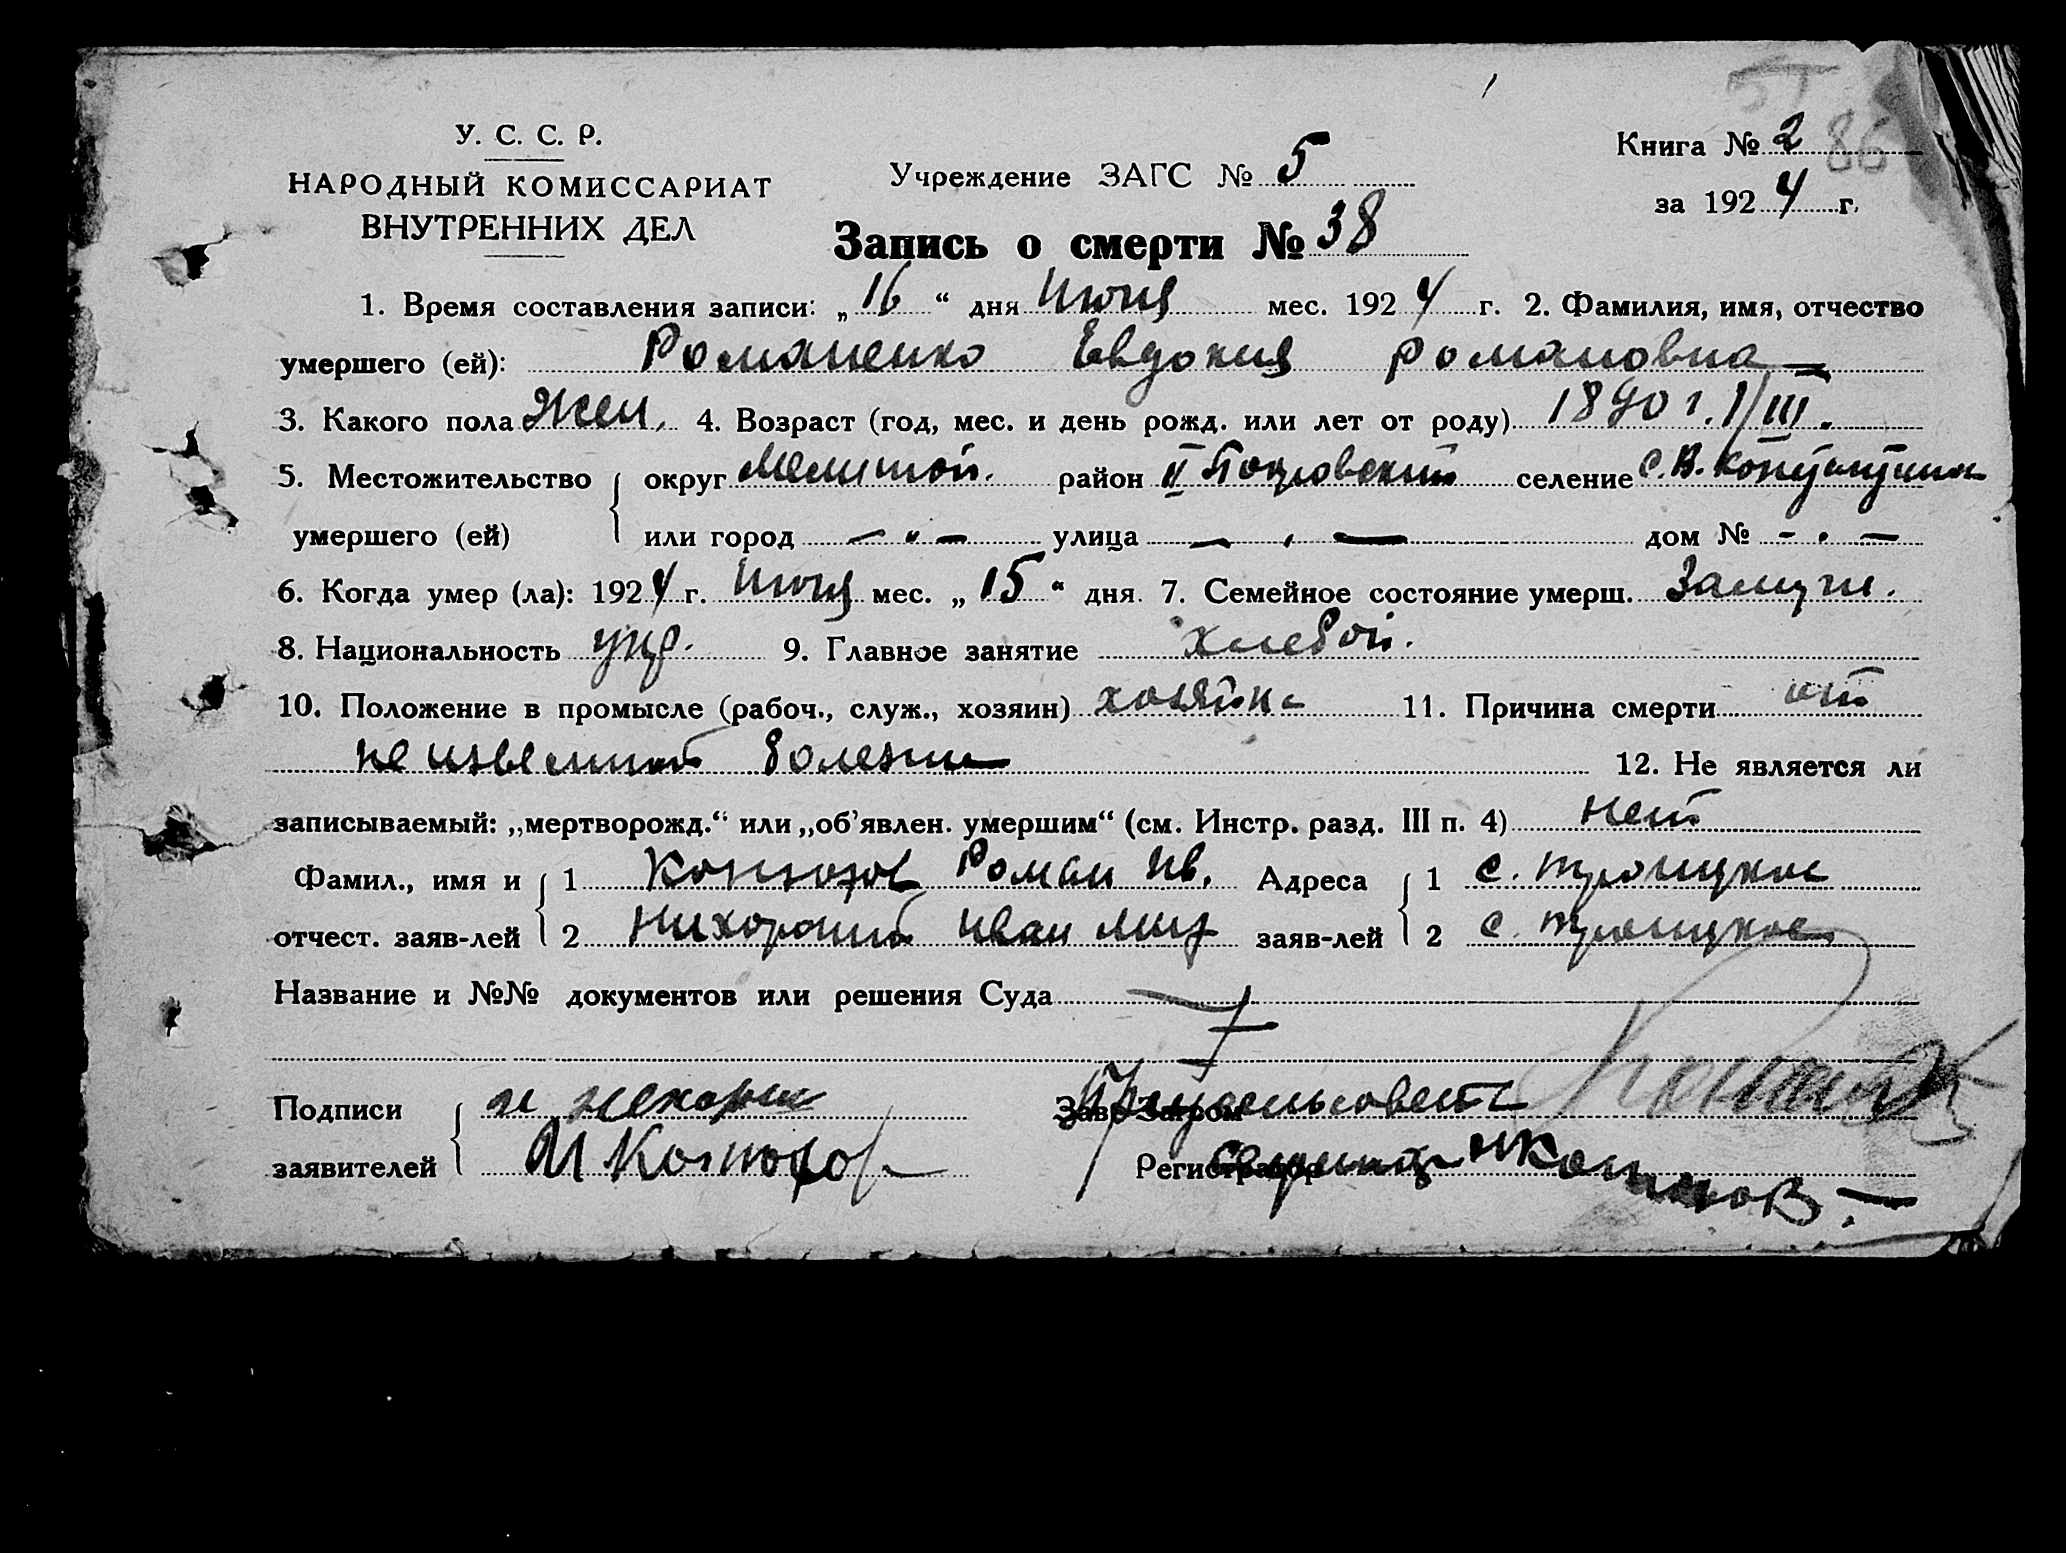 51
У. С. С. Р.
НАРОДНЫЙ КОМИССАРИАТ
ВНУТРЕННИХ ДЕЛ
Учреждение ЗАГС № 5
Книга № 2 86
за 1924 г.
Запись о смерти № 38
1. Время составления записи: „16“ дня Июня мес. 1924 г. 2. Фамилия, имя, отчество
умершего (ей): Романенко Евдокия Романовна
3. Какого пола Жен. 4. Возраст (год, мес. и день рожд. или лет от роду) 1890 г. 1/III.
5. Местожительство округ Мелитой. район II Покровский селение с. В.
умершего (ей) или город — " — улица — " — дом № - " —
6. Когда умер (ла): 1924 г. Июня мес. „15“ дня. 7. Семейное состояние умерш. Замуж.
8. Национальность укр. 9. Главное занятие хлебой.
10. Положение в промысле (рабоч., служ., хозяин) хозяйка 11. Причина смерти от
неизвестной болезни 12. Не является ли
записываемый: „мертворожд.“ или „об'явлен. умершим“ (см. Инстр. разд. III п. 4) нет
Фамил., имя и 1 Роман Ив. Адреса 1 с. Троицкое
отчест. заяв-лей 2 Иван заяв-лей 2 с. Троицкое
Название и №№ документов или решения Суда
Подписи Завг Загром
заявителей И Регистратор